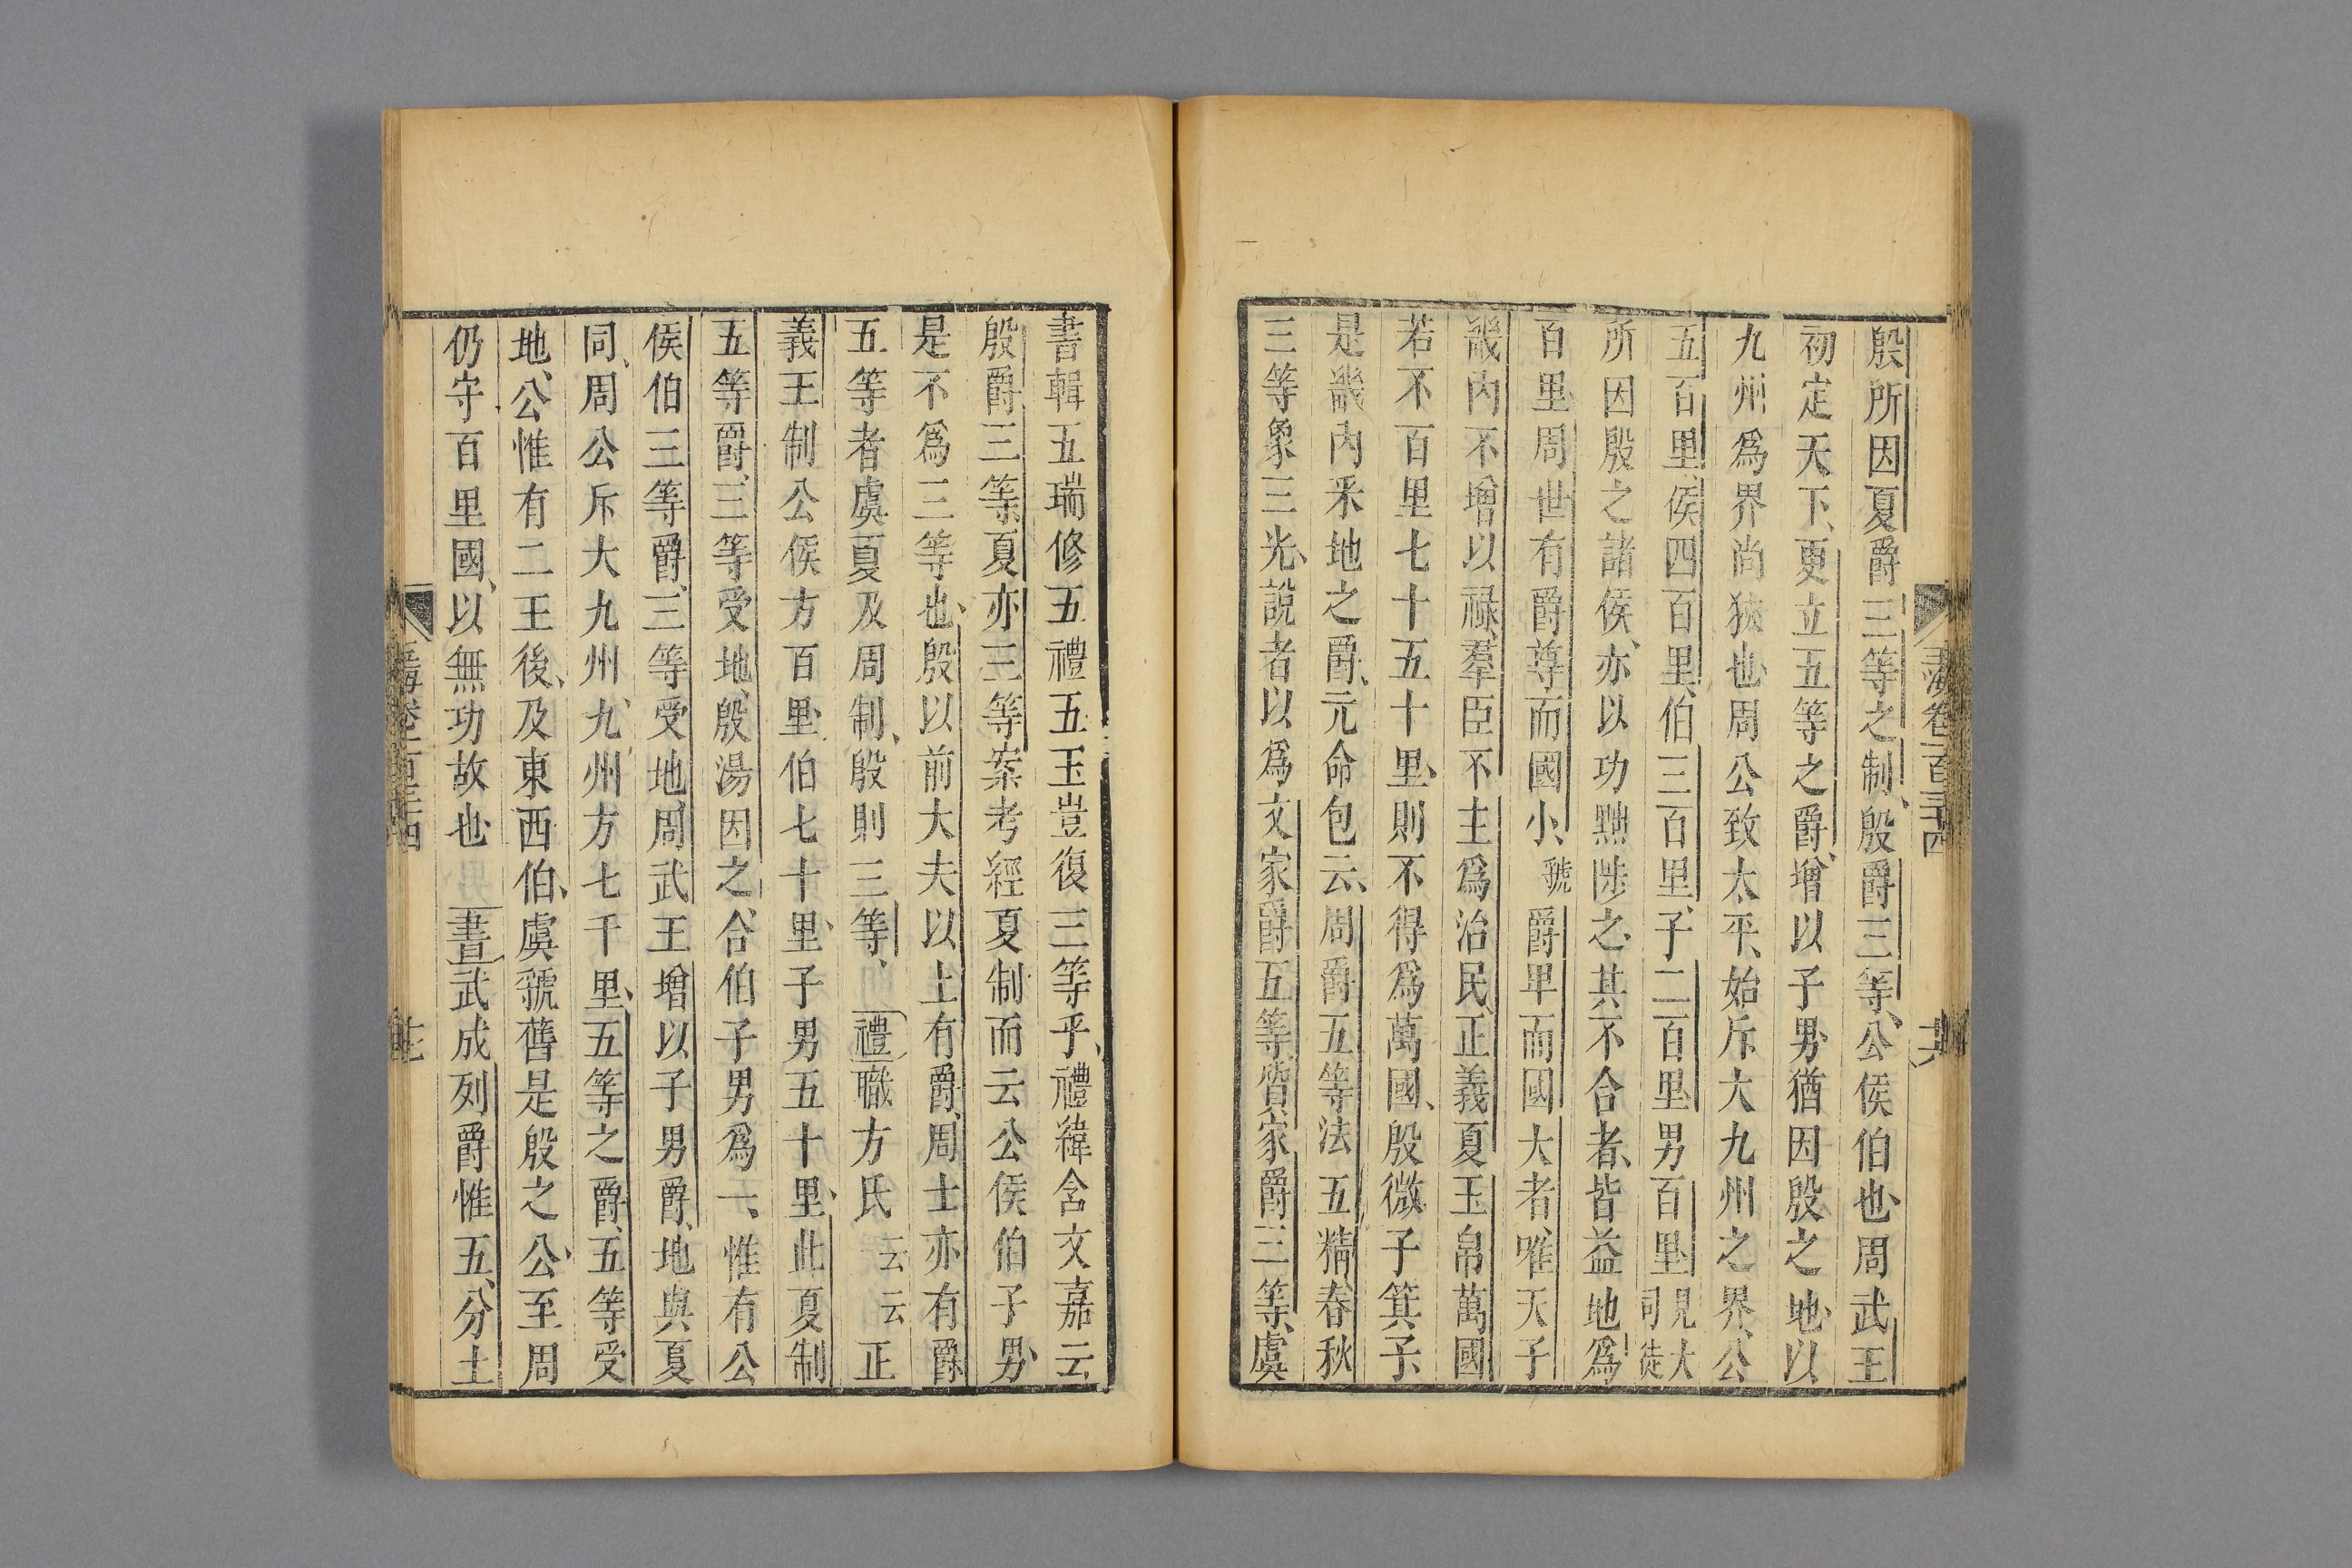 殷所因夏爵三等之制、殷爵三等、公侯伯也、周武王
初定天下、更立五等之爵、增以子男、猶因殷之地、以
九州爲界尚狹也、周公致太平、始斥大九州之界、公
五百里、侯四百里、伯三百里、子二百里、男百里見大司徒
所因殷之諸侯、亦以功黜陟之、其不合者、皆益地爲
百里、周世有爵尊而國小、虢爵卑而國大者、唯天子
畿内不增以祿、羣臣不主爲治民、正義夏玉帛萬國
若不百里七十五十里、則不得爲萬國、殷微子箕子、
是畿内釆地之爵、元命包云、周爵五等法五精春秋
三等象三光、說者以爲文家爵五等質家爵三等、虞
書輯五瑞修五禮五玉豈復三等乎、禮緯含文嘉云
殷爵三等夏亦三等案考經夏制而云公侯伯子男、
是不爲三等也、殷以前大夫以上有爵、周士亦有爵
五等者虞夏及周制、殷則三等、禮職方氏云云正
義王制公侯方百里、伯七十里、子男五十里、此夏制
五等爵、三等受地、殷湯因之、合伯子男爲一、惟有公
侯伯三等爵、三等受地、周武王增以子男爵、地與夏
同、周公斥大九州、九州方七千里、五等之爵、五等受
地、公惟有二王後、及東西伯、虞虢舊是殷之公、至周
仍守百里國、以無功故也 書武成列爵惟五、分土